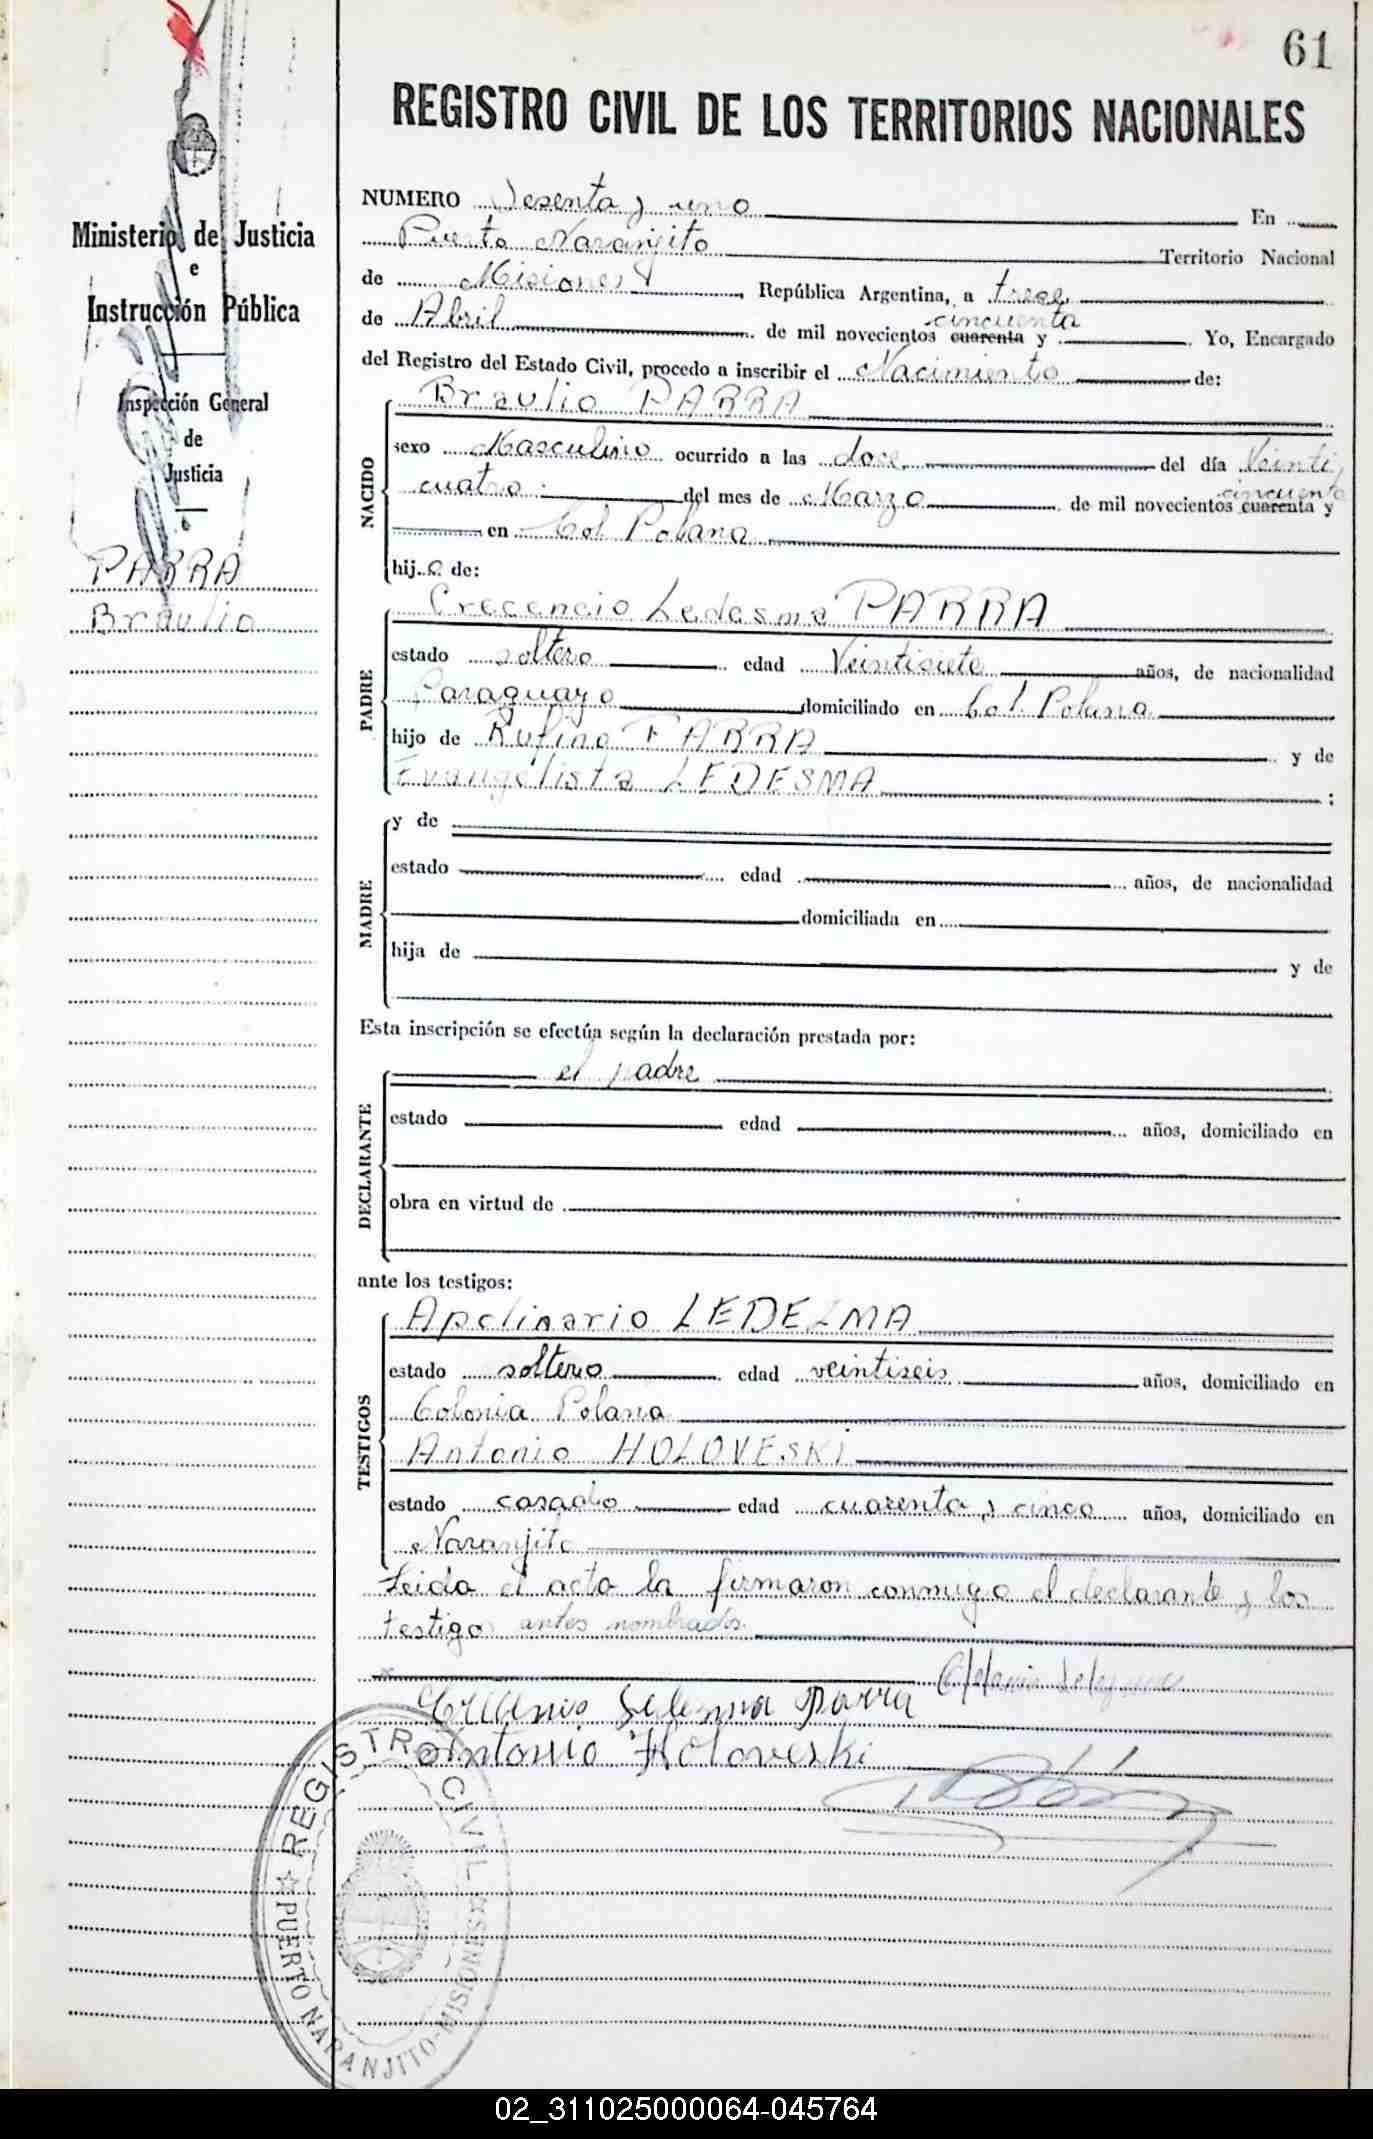 61
REGISTRO CIVIL DE LOS TERRITORIOS NACIONALES
Ministerio de Justicia
e
Instrucción Pública
Inspección General
de
Justicia
PARRA
Braulio
NUMERO Sesenta y uno En
Puerto Naranjito Territorio Nacional
de Misiones, República Argentina, a trece
de Abril de mil novecientos cuarenta y cincuenta. Yo, Encargado
del Registro del Estado Civil, procedo a inscribir el Nacimiento de:
NACIDO
Braulio PARRA
sexo Masculino ocurrido a las doce del día Veinti
cuatro del mes de Marzo de mil novecientos cuarenta y cincuenta
en Col Polana
hijo de:
PADRE
Crecencio Ledesma PARRA
estado soltero edad Veintisiete años, de nacionalidad
Paraguayo domiciliado en Col. Polana
hijo de Rufino PARRA y de
Evangelista LEDESMA ;
MADRE
y de
estado edad años, de nacionalidad
domiciliada en
hija de y de
Esta inscripción se efectúa según la declaración prestada por:
DECLARANTE
el padre
estado edad años, domiciliado en
obra en virtud de
ante los testigos:
TESTIGOS
Apolinario LEDEZMA
estado soltero edad veintiseis años, domiciliado en
Colonia Polana
Antonio HOLOVESKI
estado casado edad cuarenta y cinco años, domiciliado en
Naranjito
Leida el acta la firmaron conmigo el declarante y los
testigos antes nombrados.
Ledesma Parra
Antonio Holoveski
REGISTRO CIVIL
PUERTO NARANJITO-MISIONES
02_311025000064-045764